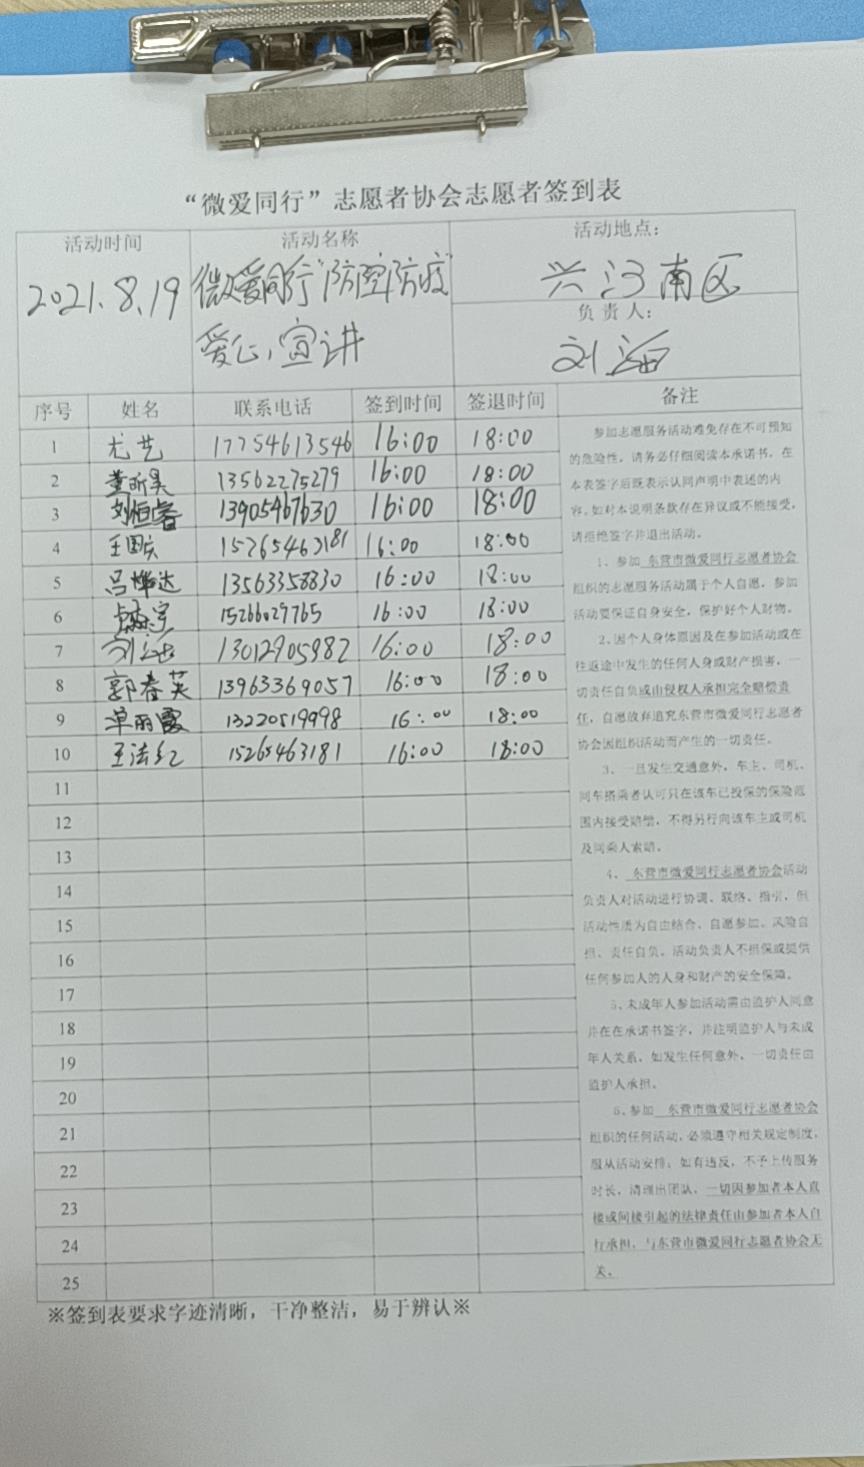 “微爱同行”志愿者协会志愿者签到表
活动时间 活动名称 活动地点：
2021.8.19 微爱同行“防控防疫” 兴河南区
爱心宣讲
负责人：
刘海
序号 姓名 联系电话 签到时间 签退时间 备注
1 尤艺 17754613546 16:00 18:00
2 董昕昊 13562275279 16:00 18:00
3 刘恒睿 13905467630 16:00 18:00
4 王国庆 15265463181 16:00 18:00
5 吕烨达 13563358830 16:00 18:00
6 15266029765 16:00 18:00
7 刘海 13012905982 16:00 18:00
8 郭春英 13963369057 16:00 18:00
9 单丽霞 13220519998 16:00 18:00
10 王法红 15265463181 16:00 18:00
11
12
13
14
15
16
17
18
19
20
21
22
23
24
25
参加志愿服务活动难免存在不可预知
的危险性，请务必仔细阅读本承诺书，在
本表签字后既表示认同声明中表述的内
容。如对本说明条款存在异议或不能接受，
请拒绝签字并退出活动。
1、参加 东营市微爱同行志愿者协会
组织的志愿服务活动属于个人自愿，参加
活动要保证自身安全，保护好个人财物。
2、因个人身体原因及在参加活动或在
往返途中发生的任何人身或财产损害，一
切责任自负或由侵权人承担完全赔偿责
任，自愿放弃追究东营市微爱同行志愿者
协会因组织活动而产生的一切责任。
3、一旦发生交通意外，车主、司机、
同车搭乘者认可只在该车已投保的保险范
围内接受赔偿，不得另行向该车主或司机
及同乘人索赔。
4、 东营市微爱同行志愿者协会活动
负责人对活动进行协调、联络、指引，但
活动性质为自由结合、自愿参加、风险自
担、责任自负。活动负责人不担保或提供
任何参加人的人身和财产的安全保障。
5、未成年人参加活动需由监护人同意
并在在承诺书签字，并注明监护人与未成
年人关系，如发生任何意外，一切责任由
监护人承担。
6、参加 东营市微爱同行志愿者协会
组织的任何活动，必须遵守相关规定制度，
服从活动安排，如有违反，不予上传服务
时长，清理出团队，一切因参加者本人直
接或间接引起的法律责任由参加者本人自
行承担，与东营市微爱同行志愿者协会无
关。
※签到表要求字迹清晰，干净整洁，易于辨认※